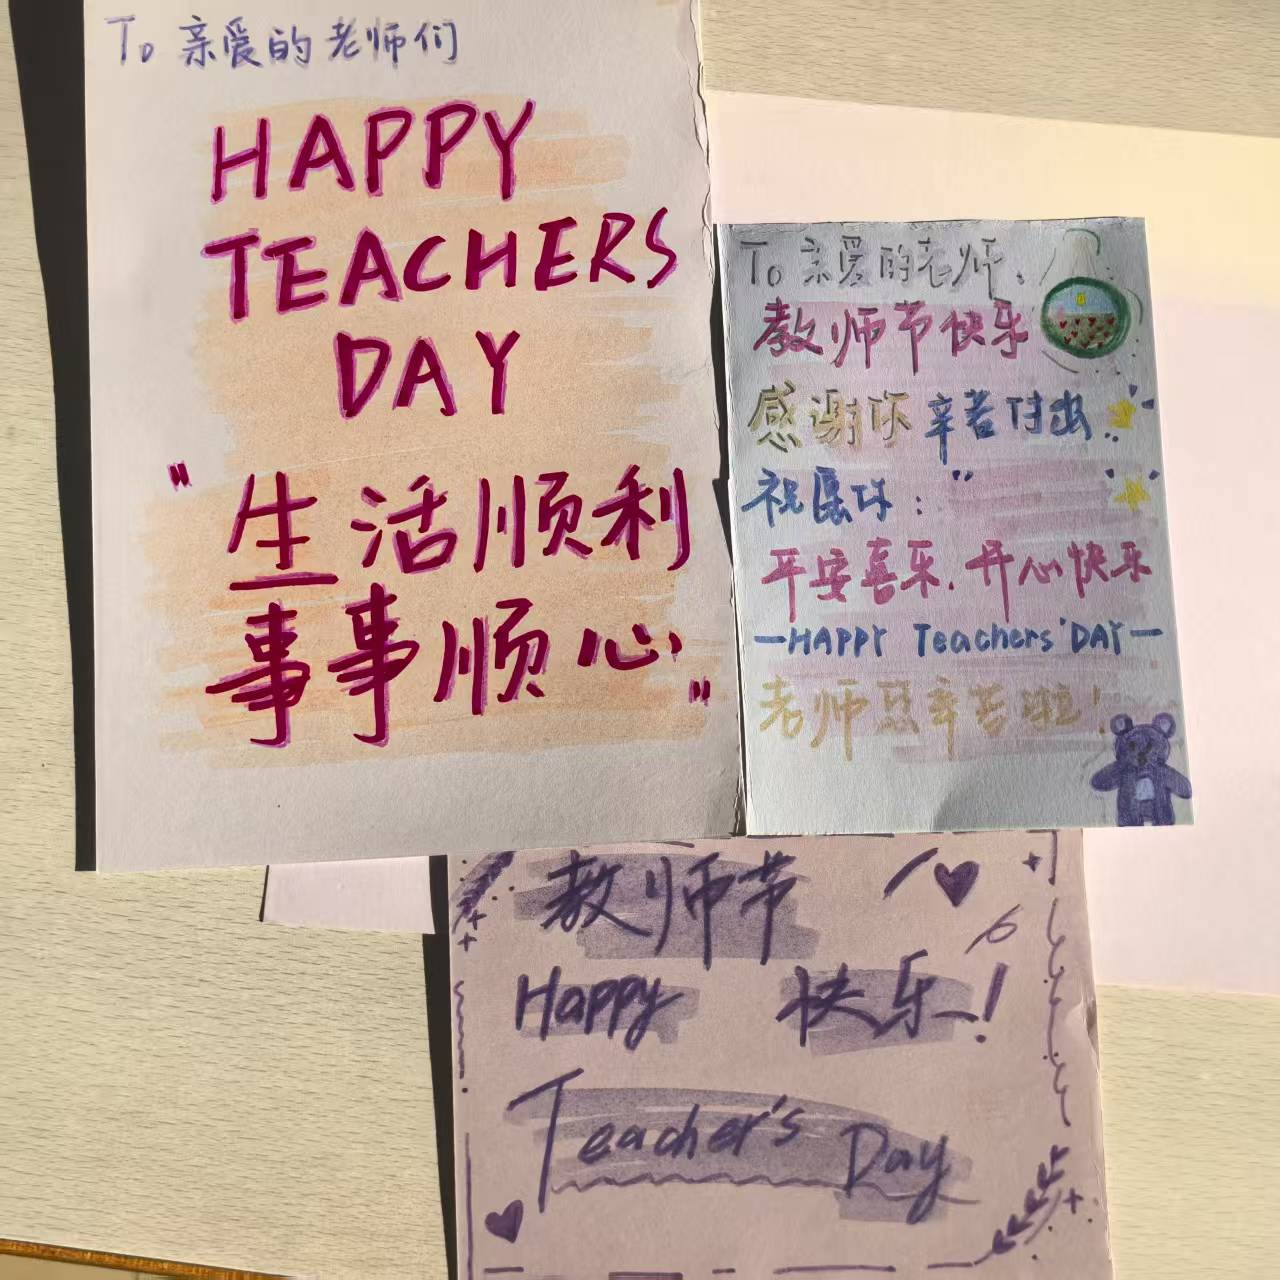 To 亲爱的老师们
HAPPY
TEACHERS
DAY
"生活顺利
事事顺心"
To 亲爱的老师、
教师节快乐
感谢你辛苦付出
祝愿你:"
平安喜乐.开心快乐
—HAPPY Teachers'DAY—
老师总辛苦啦!
教师节
Happy 快乐!
Teacher's Day